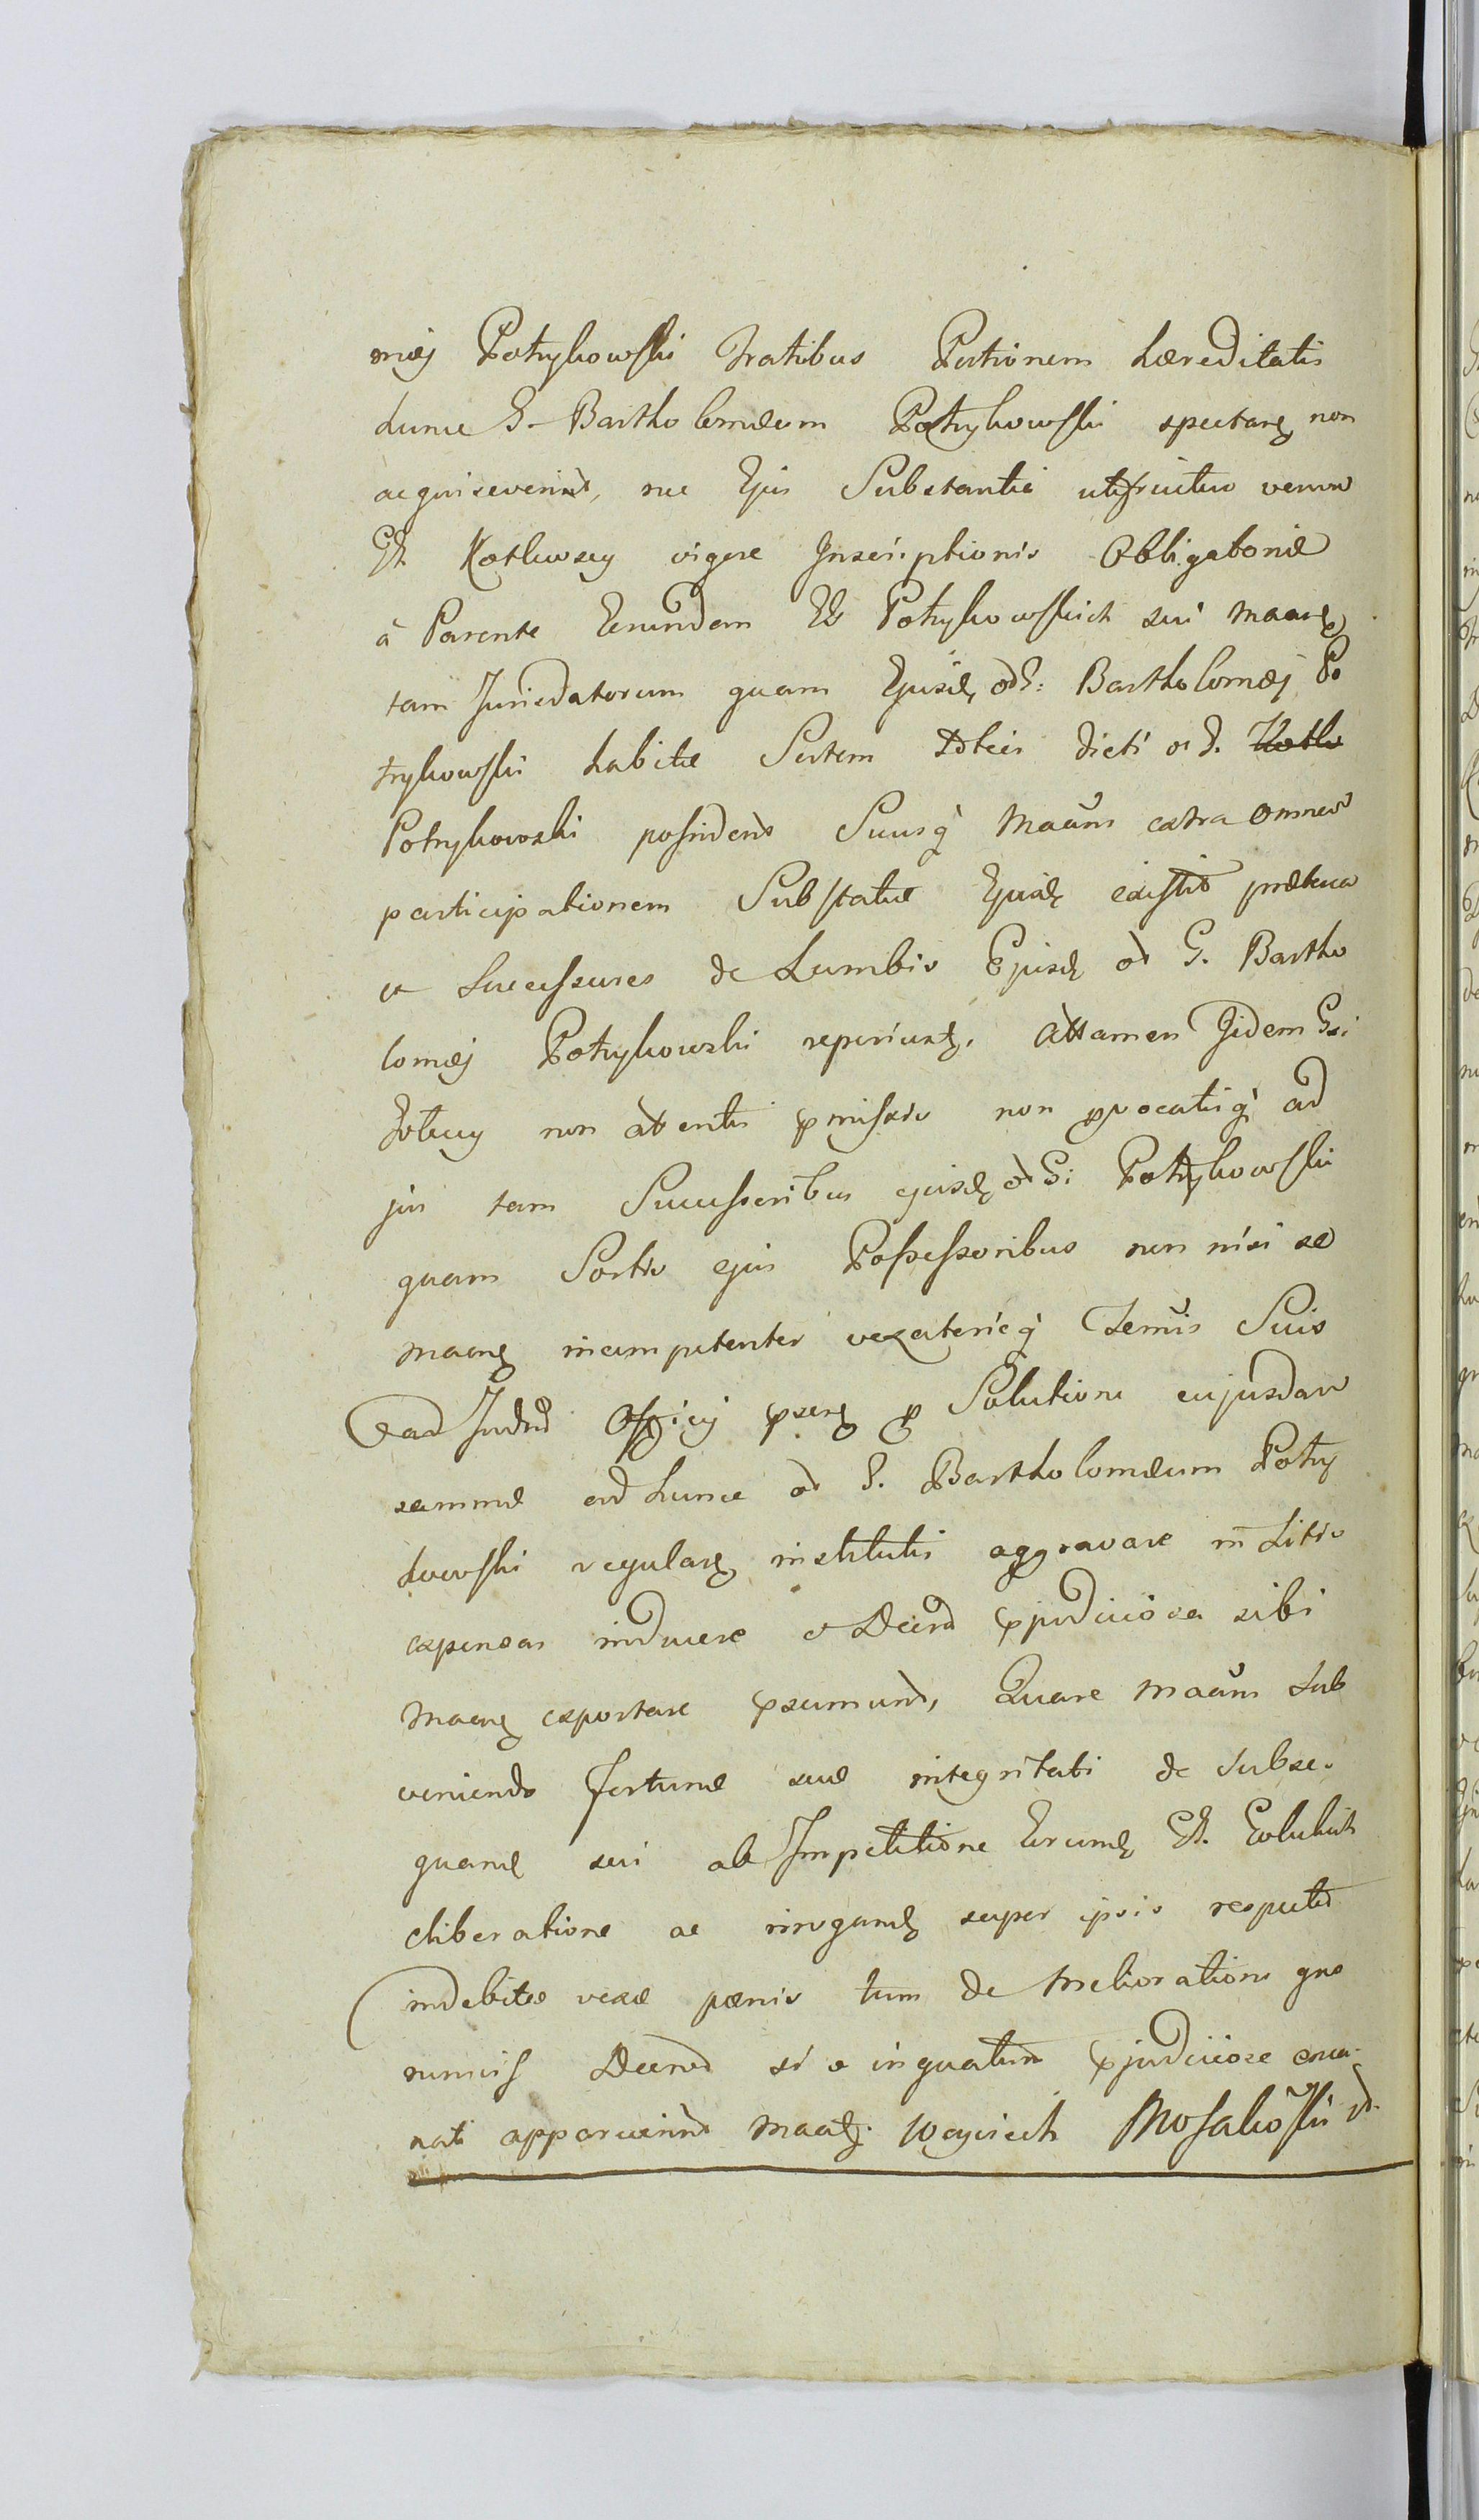 mæj Potrykowski Fratibus Portionem hæreditatis
hunce G. Bartholomæum Potrykowski spectanę non
acquisiverint, nec Ejus Substantia utifruitur verum
GG. Kotkowscy vigore Inscriptionis Obligatoriæ
à Parente Eorundem GG Potrykowskich sui Maarę
tam Juriedatorum quam Ejusdę olî G: Bartholomæj Po
trykowski habitæ Sortem totius dicti ol G. Kotko
Potrykowski possident Suusq̀ Maãns extra omnem
participationem Substatiæ Ejusdę existit præterea
et Successores de Lumbis Ejusdę ol G. Bartho
lomæj Potrykowski reperiuntę, Attamen Iidem Gsi
non attentis pmissis non pvocatisq̀ ad
jus tam Successoribus ejusdę ol Gi Potrykowski
quam Sortis ejus Possessoribus non nisi se
Maanę incompetenter vexatorieq̀ Termis Suis
ead Judỹ Officij psenę p Solutione cujusdam
summæ ad hunce ol G. Bartholomæum Potry
kowski regulanę institutis aggravare in Litis
expensas inducere et Decrã pjudiciosa sibi
Maanę exportare psumunt, Quare Maãns sub
veniendo fortunæ suæ integritati de subse-
quamę sui ab Impetitione Eorumdę GG.
eliberatione ac irrogandę super ipsis respectu
indebitæ vexæ pænis tum de Melioratione qno
rumvis Decrorũ si o inquatum pjudiciose ema-
nati apparuerint Maatę. Woyciech Mosakoski